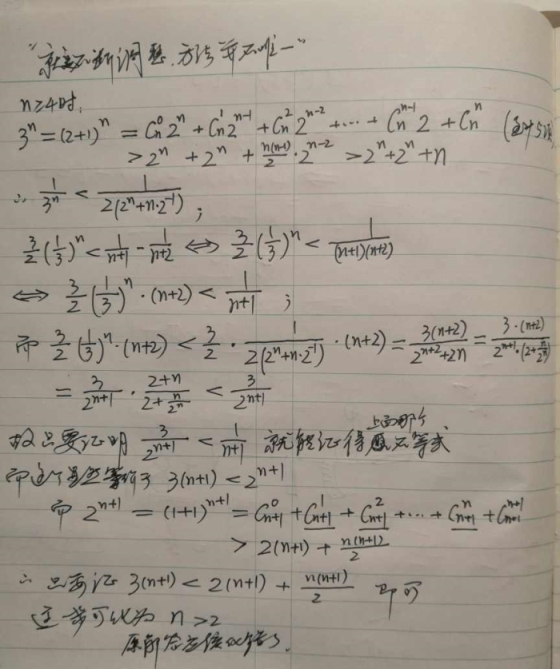 "就是不断调整,方法并不唯一"
n≥4时,
3^n=(2+1)^n = C_n^0 2^n + C_n^1 2^{n-1} + C_n^2 2^{n-2} + … + C_n^{n-1} 2 + C_n^n (至少5项)
> 2^n + 2^n + \frac{n(n-1)}{2}·2^{n-2} > 2^n+2^n+n
∴ \frac{1}{3^n} < \frac{1}{2(2^n+n·2^{-1})};
\frac{3}{2}(\frac{1}{3})^n < \frac{1}{n+1} - \frac{1}{n+2} ⟺ \frac{3}{2}(\frac{1}{3})^n < \frac{1}{(n+1)(n+2)}
⟺ \frac{3}{2}(\frac{1}{3})^n·(n+2) < \frac{1}{n+1};
而 \frac{3}{2}(\frac{1}{3})^n·(n+2) < \frac{3}{2}·\frac{1}{2(2^n+n·2^{-1})}·(n+2) = \frac{3(n+2)}{2^{n+2}+2n} = \frac{3·(n+2)}{2^{n+1}·(2+\frac{n}{2^n})}
= \frac{3}{2^{n+1}}·\frac{2+n}{2+\frac{n}{2^n}} < \frac{3}{2^{n+1}}
故只要证明 \frac{3}{2^{n+1}} < \frac{1}{n+1} 就能证得上面那个不等式
而这个显然等价于 3(n+1) < 2^{n+1}
而 2^{n+1} = (1+1)^{n+1} = C_{n+1}^0 + C_{n+1}^1 + C_{n+1}^2 + … + C_{n+1}^n + C_{n+1}^{n+1}
> 2(n+1) + \frac{n(n+1)}{2}
∴ 只要证 3(n+1) < 2(n+1) + \frac{n(n+1)}{2} 即可
这等可化为 n>2